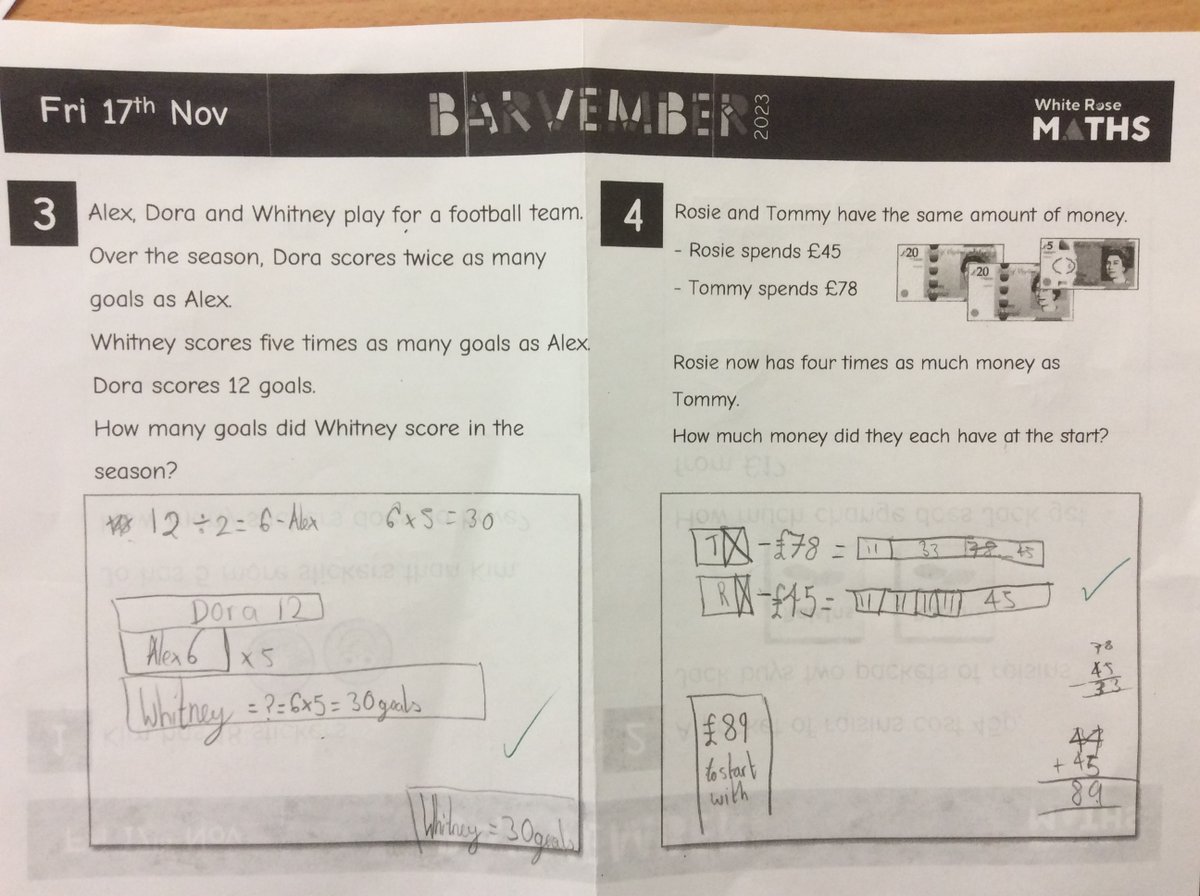 Fri 17th Nov
BARVEMBER 2023
White Rose
MATHS
3
Alex, Dora and Whitney play for a football team.
Over the season, Dora scores twice as many
goals as Alex.
Whitney scores five times as many goals as Alex.
Dora scores 12 goals.
How many goals did Whitney score in the
season?
12 ÷ 2 = 6 - Alex 6 x 5 = 30
Dora 12
Alex 6 x 5
Whitney = ? = 6x5 = 30 goals
Whitney = 30 goals
4
Rosie and Tommy have the same amount of money.
- Rosie spends £45
- Tommy spends £78
£20
£20
£5
Rosie now has four times as much money as
Tommy.
How much money did they each have at the start?
T - £78 = 11 33 78 - 45
R - £45 = 11 11 11 11 45
78
45
33
£89
to start
with
44
+ 45
89